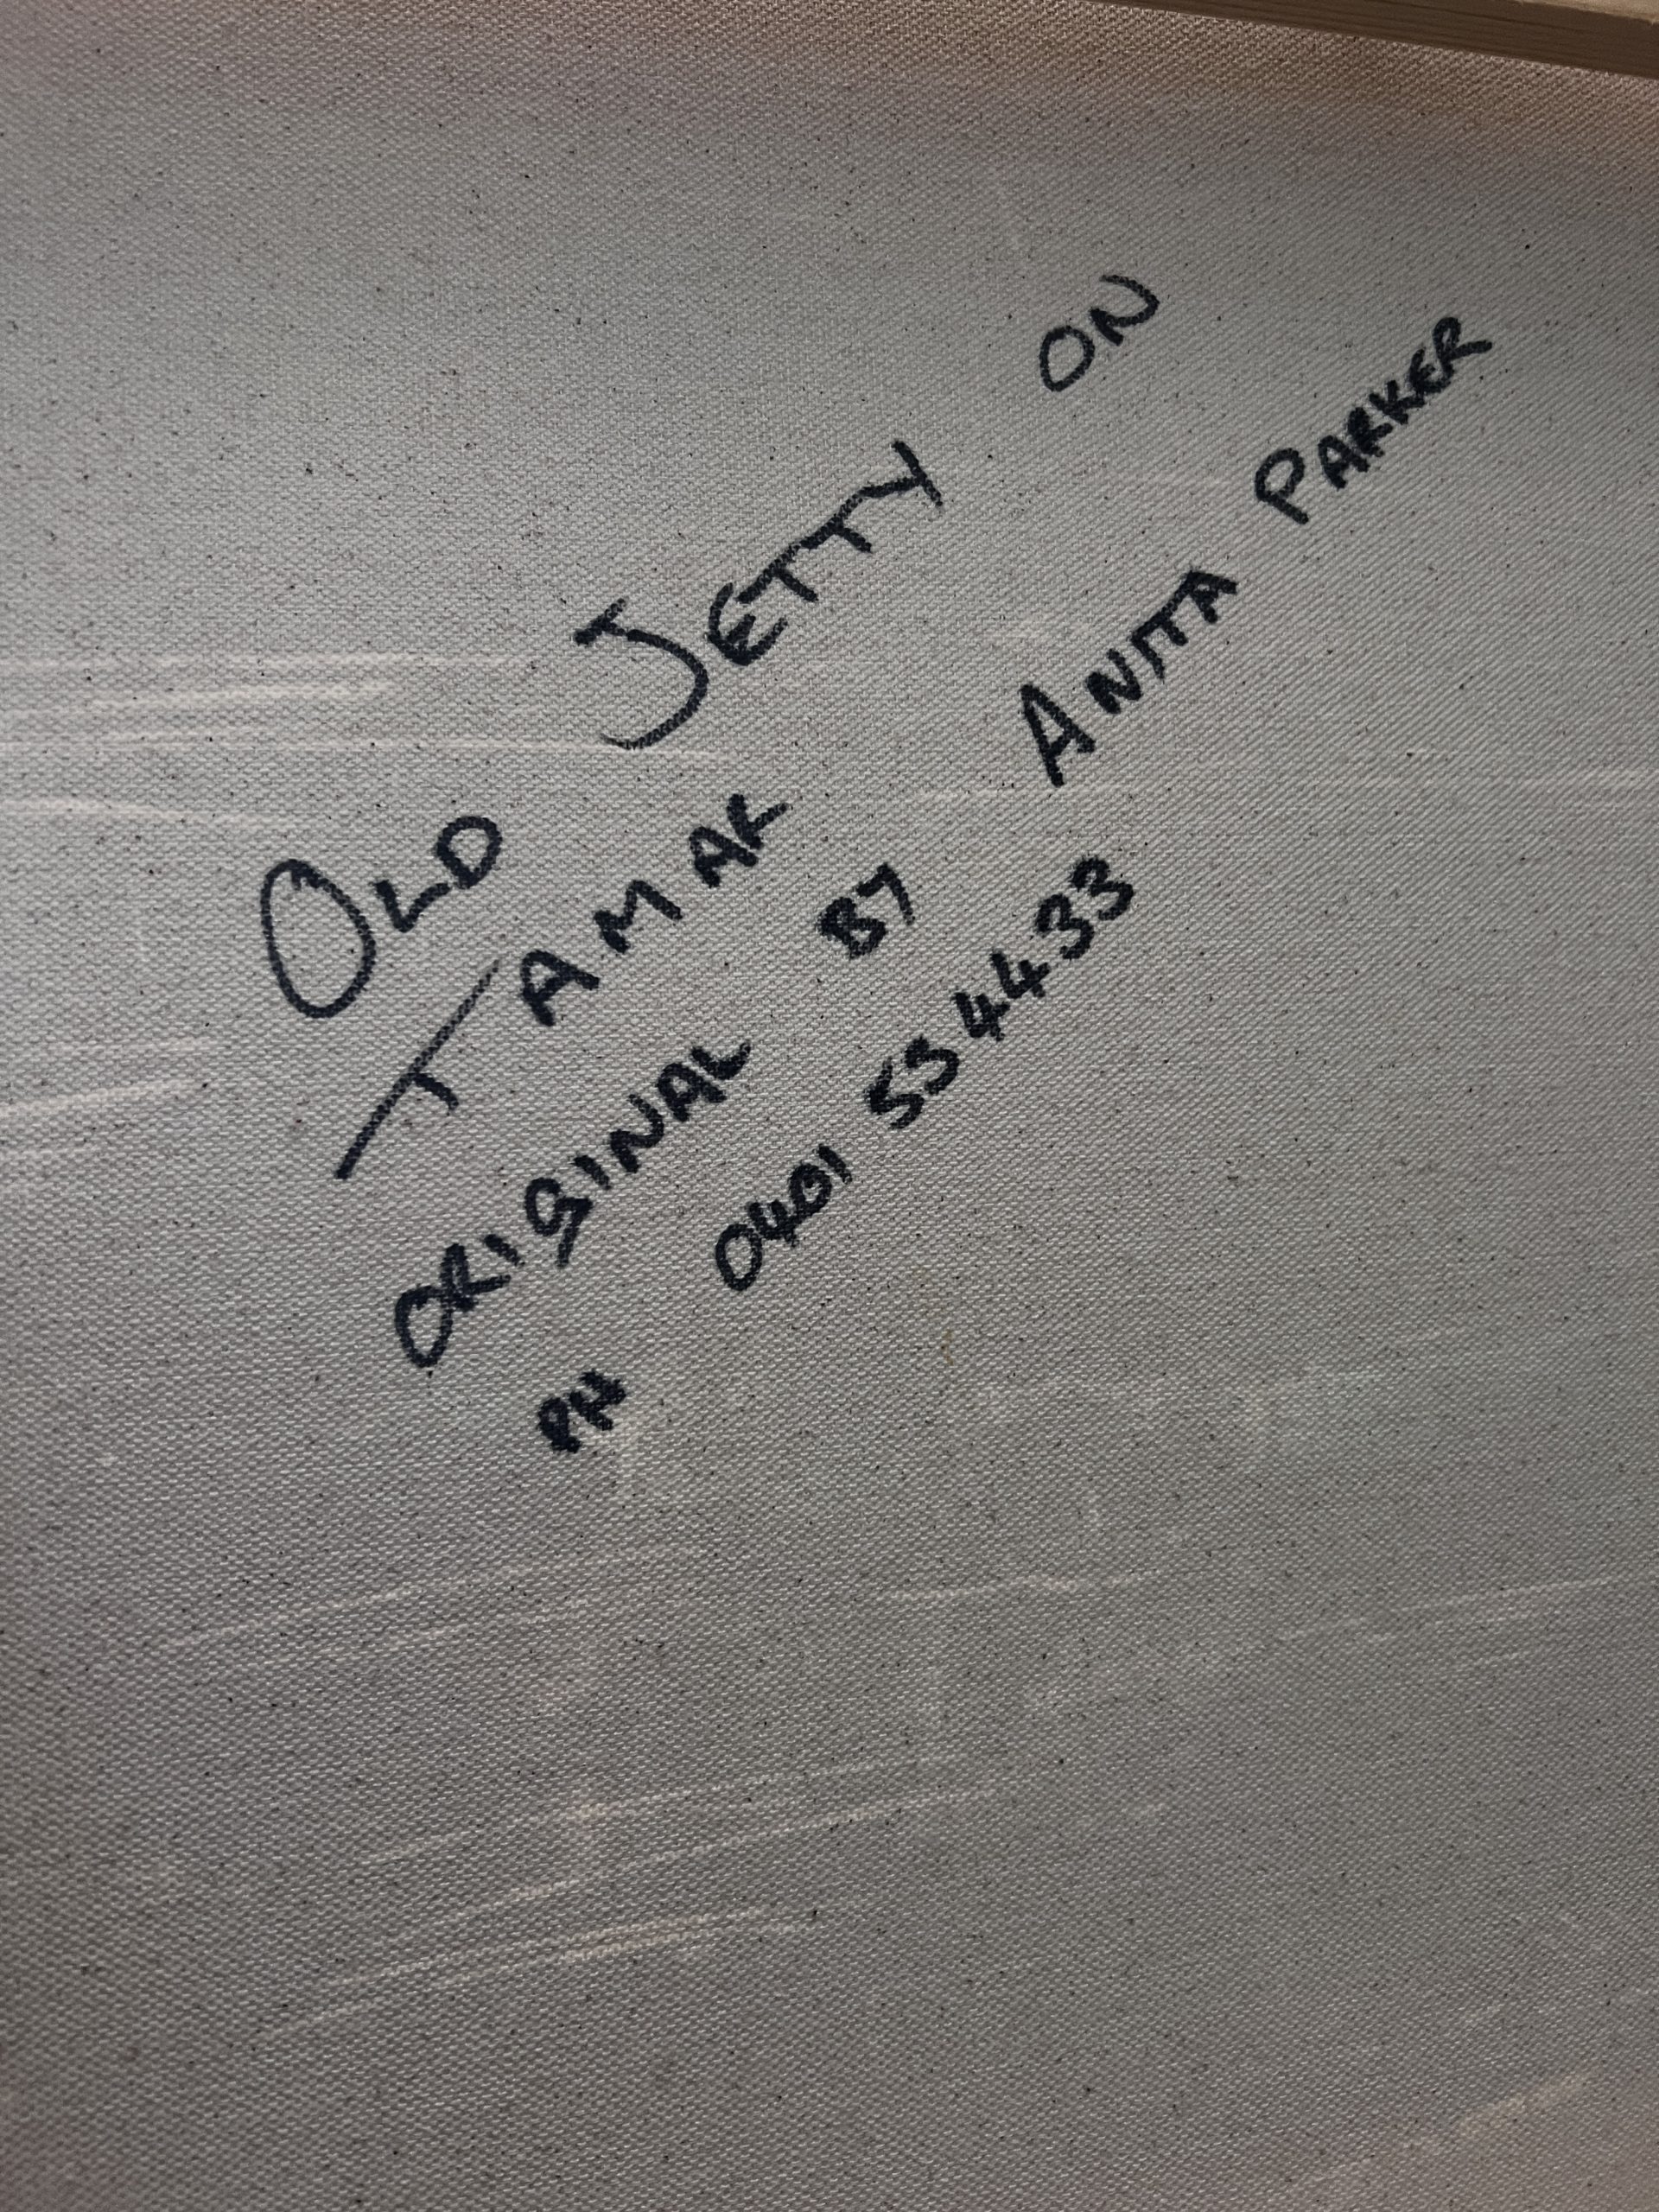 OLD JETTY ON
TAMAR
ORIGINAL BY ANITA PARKER
PH 0401 554433